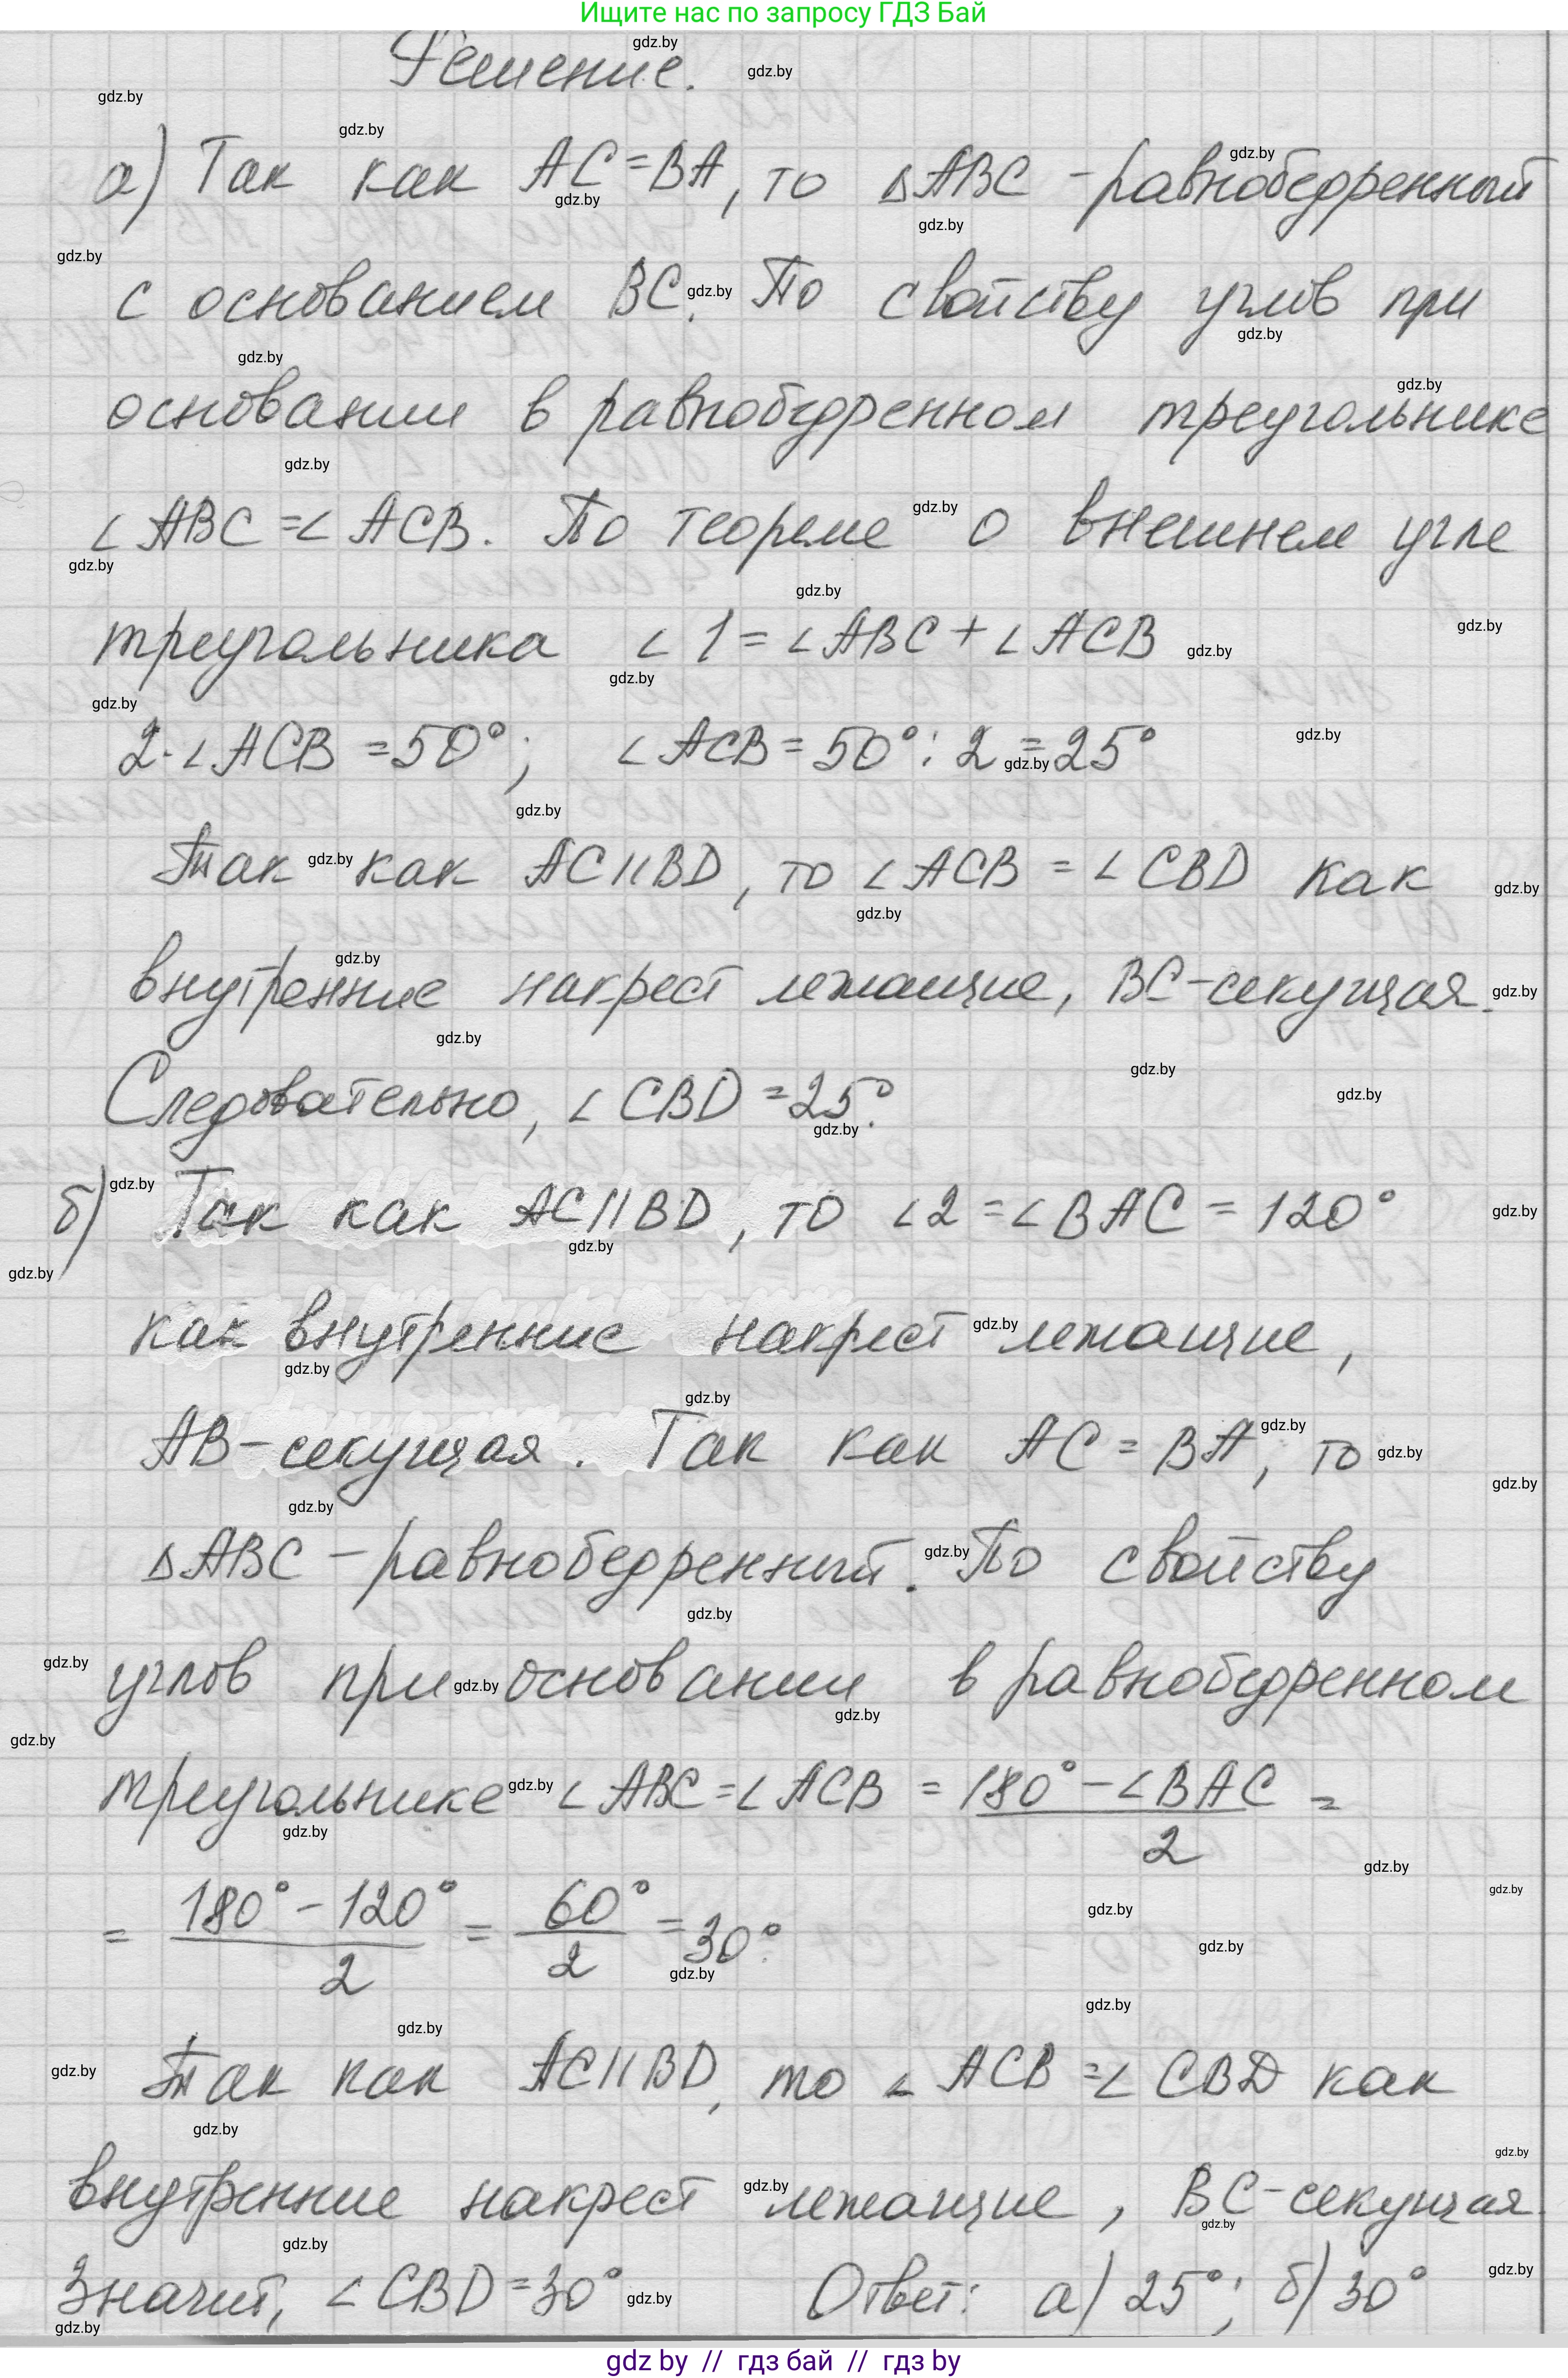 Ищите нас по запросу ГДЗ Бай
Решение.
а) Так как AC=BA, то ΔABC -равнобедренный
с основанием BC. По свойству углов при
основании в равнобедренном треугольнике
∠ABC=∠ACB. По теореме о внешнем угле
треугольника ∠1=∠ABC+∠ACB
2·∠ACB=50°; ∠ACB=50°:2=25°
Так как AC||BD, то ∠ACB=∠CBD как
внутренние накрест лежащие, BC-секущая.
Следовательно, ∠CBD=25°.
б) Так как AC||BD, то ∠2=∠BAC=120°
как внутренние накрест лежащие,
AB-секущая. Так как AC=BA, то
ΔABC -равнобедренный. По свойству
углов при основании в равнобедренном
треугольнике ∠ABC=∠ACB = (180°-∠BAC)/2 =
= (180°-120°)/2 = 60°/2 = 30°.
Так как AC||BD, то ∠ACB=∠CBD как
внутренние накрест лежащие, BC-секущая.
Значит, ∠CBD=30° Ответ: а) 25°; б) 30°
gdz by // гдз бай // гдз by